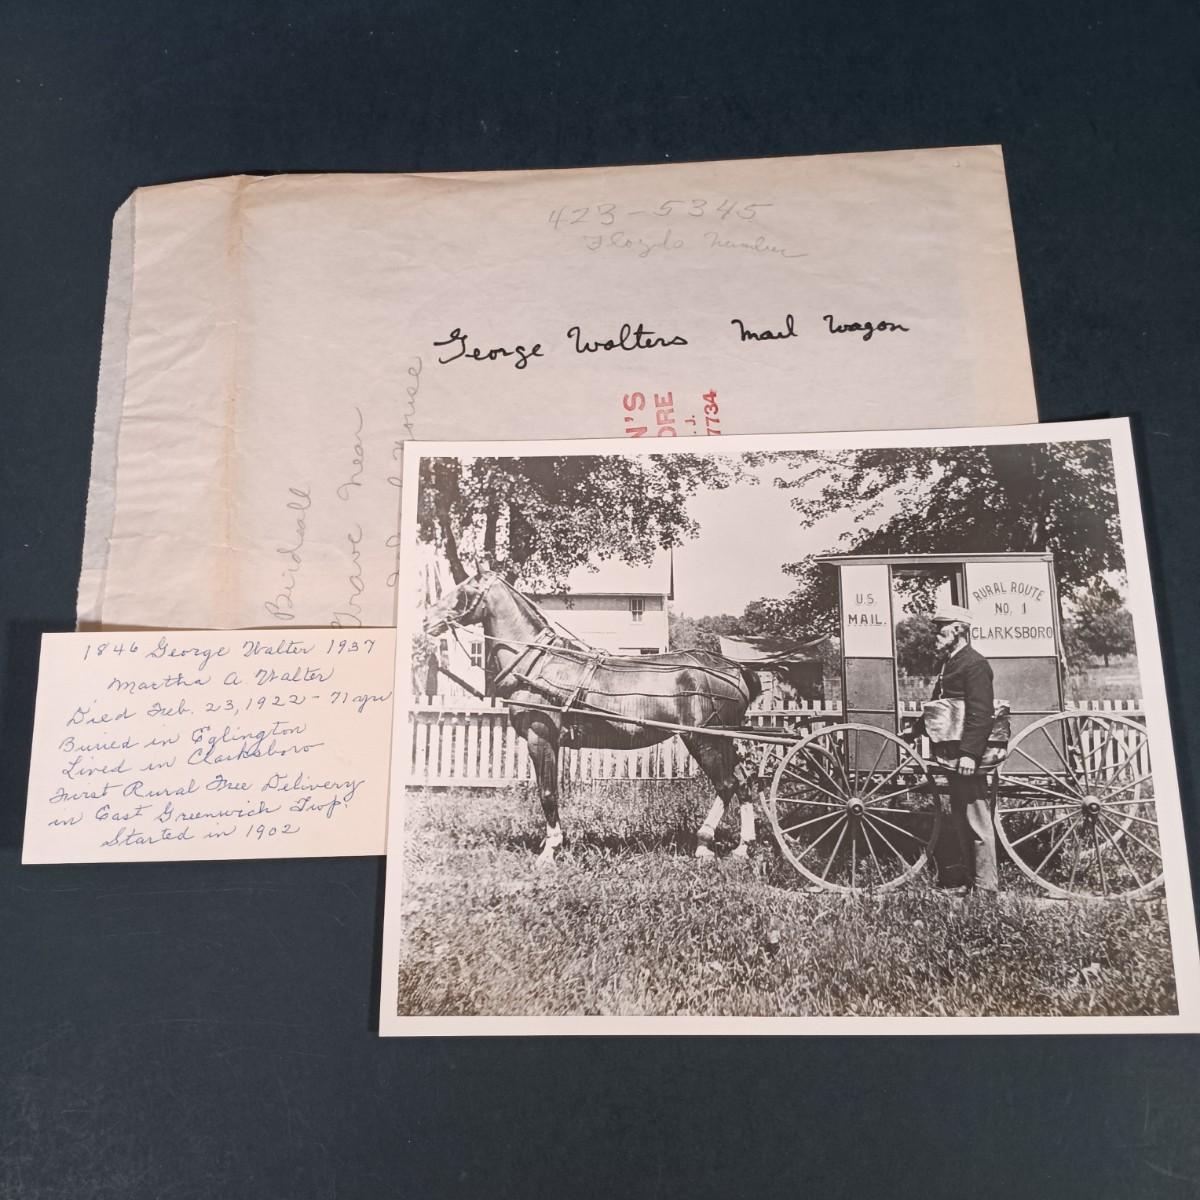 423-5345
Floyds Number
George Walters Mail Wagon
Birdsall
Grave Near
House
N'S
ORE
. J.
7734
1846 George Walter 1937
Martha A. Walter
Died Feb. 23, 1922 - 71 yrs
Buried in Eglington
Lived in Clarksboro
Furst Rural Free Delivery
in East Greenwich Twp.
Started in 1902
U.S.
MAIL.
RURAL ROUTE
NO. 1
CLARKSBORO